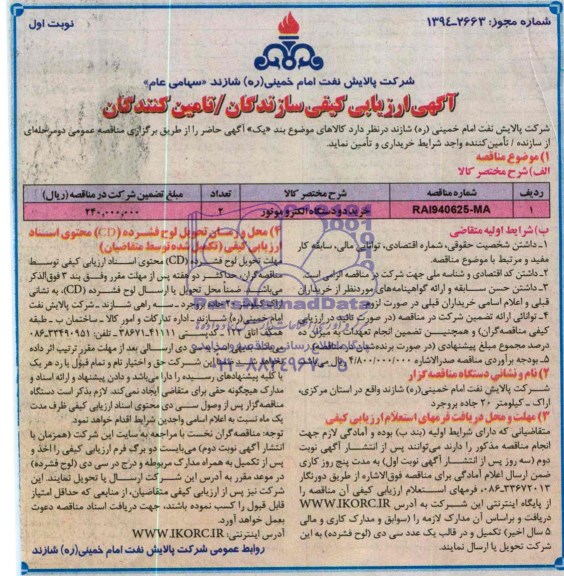 شماره مجوز: ۱۳۹٤-۲۶۶۳
نوبت اول
شرکت پالایش نفت امام خمینی(ره) شازند «سهامی عام»
آگهی ارزیابی کیفی سازندگان/تامین کنندگان
شرکت پالایش نفت امام خمینی (ره) شازند درنظر دارد کالاهای موضوع بند «یک» آگهی حاضر را از طریق برگزاری مناقصه عمومی دومرحله‌ای
از سازنده / تأمین‌کننده واجد شرایط خریداری و تأمین نماید.
۱) موضوع مناقصه
الف) شرح مختصر کالا
ردیف شماره مناقصه شرح مختصر کالا تعداد مبلغ تضمین شرکت در مناقصه (ریال)
۱ RAI940625-MA خرید دو دستگاه الکتروموتور ۲ ۲۴۰,۰۰۰,۰۰۰
ب) شرایط اولیه متقاضی
۱ـ داشتن شخصیت حقوقی، شماره اقتصادی، توانایی مالی، سابقه کار
مفید و مرتبط با موضوع مناقصه.
۲ـ داشتن کد اقتصادی و شناسه ملی جهت شرکت در مناقصه الزامی است.
۳ـ داشتن حسن سابقه و ارائه گواهینامه‌های موردنظر از خریداران
قبلی و اعلام اسامی خریداران قبلی در صورت لزوم.
۴ـ توانائی ارائه تضمین شرکت در مناقصه (در صورت تائید در ارزیابی
کیفی مناقصه‌گران) و همچنین تضمین انجام تعهدات به میزان ده
درصد مجموع مبلغ پیشنهادی (در صورت برنده شدن در مناقصه)
۵ـ بودجه برآوردی مناقصه صدرالاشاره ۴/۸۰۰/۰۰۰/۰۰۰ ریال می‌باشد.
۲) نام و نشانی دستگاه مناقصه گزار
شرکت پالایش نفت امام خمینی (ره) شازند واقع در استان مرکزی،
اراک ـ کیلومتر ۲۰ جاده بروجرد
۳) مهلت و محل دریافت فرمهای استعلام ارزیابی کیفی
متقاضیانی که دارای شرایط اولیه (بند ب) بوده و آمادگی لازم جهت
انجام مناقصه مذکور را دارند می‌توانند پس از انتشار آگهی نوبت
دوم (سه روز پس از انتشار آگهی نوبت اول) به مدت پنج روز کاری
ضمن ارسال اعلام آمادگی برای مناقصه فوق‌الاشاره از طریق دورنگار
۰۸۶-۳۳۶۷۲۰۱۳، فرمهای استعلام ارزیابی کیفی آن مناقصه را
از پایگاه اینترنتی این شرکت به آدرس WWW.IKORC.IR
دریافت و براساس آن مدارک لازمه را (سوابق و مدارک کاری و مالی
۵ سال اخیر) تکمیل و در قالب یک عدد سی دی (لوح فشرده) به این
شرکت تحویل یا ارسال نمایند.
۴) محل و زمان تحویل لوح فشرده (CD) محتوی اسناد
ارزیابی کیفی (تکمیل شده توسط متقاضیان)
مهلت تحویل لوح فشرده (CD) محتوی اسناد ارزیابی کیفی توسط
مناقصه‌گران، حداکثر دو هفته پس از مهلت مقرر وفق بند ۳ فوق‌الذکر
می‌باشد. ضمناً محل تحویل یا ارسال لوح فشرده (CD)، به نشانی
اراک کیلومتر ۲۰ جاده بروجرد ـ سه راهی شازند ـ شرکت پالایش نفت
امام خمینی(ره) شازند ـ اداره تدارکات و امور کالا ـ ساختمان ب ـ طبقه
یک نسبت به اعلام اسامی واجدین شرایط اقدام خواهد نمود.
توجه: مناقصه‌گران نخست با مراجعه به سایت این شرکت (همزمان با
انتشار آگهی نوبت دوم) می‌بایست دو برگ فرم ارزیابی کیفی را اخذ و
پس از تکمیل به همراه مدارک مربوطه و درج در سی دی (لوح فشرده)
در موعد مقرر به آدرس این شرکت ارسال یا تحویل نمایند. این
شرکت نیز پس از ارزیابی کیفی متقاضیان، از منابعی که حداقل امتیاز
قابل قبول را کسب نموده باشند، جهت دریافت اسناد مناقصه دعوت
بعمل خواهد آورد.
آدرس اینترنتی: WWW.IKORC.IR
روابط عمومی شرکت پالایش نفت امام خمینی(ره) شازند
ParsNamadData
۰۲۱-۸۸۳۴۹۶۷۰-۵